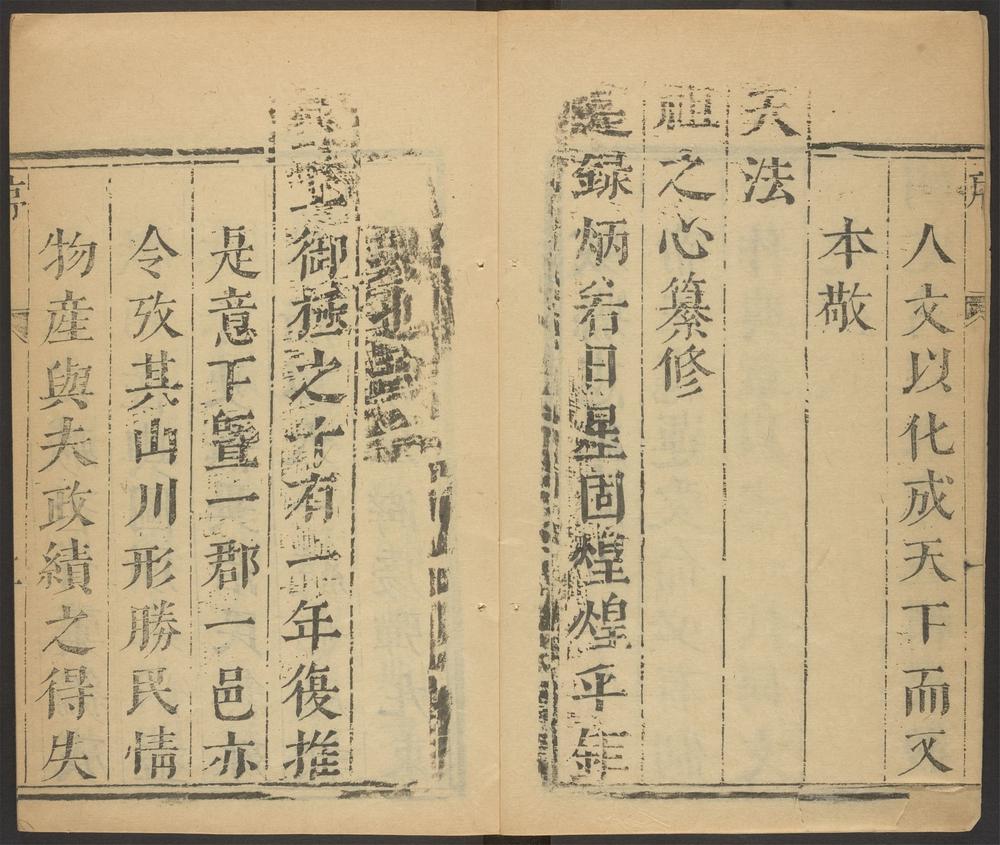 人文以化成天下而又
本敬
天法
祖之心纂修
録炳若日星固煌煌乎年
上御極之十有一年復推
是意下曁一郡一邑亦
令攷其山川形勝民情
物產與夫政績之得失
序